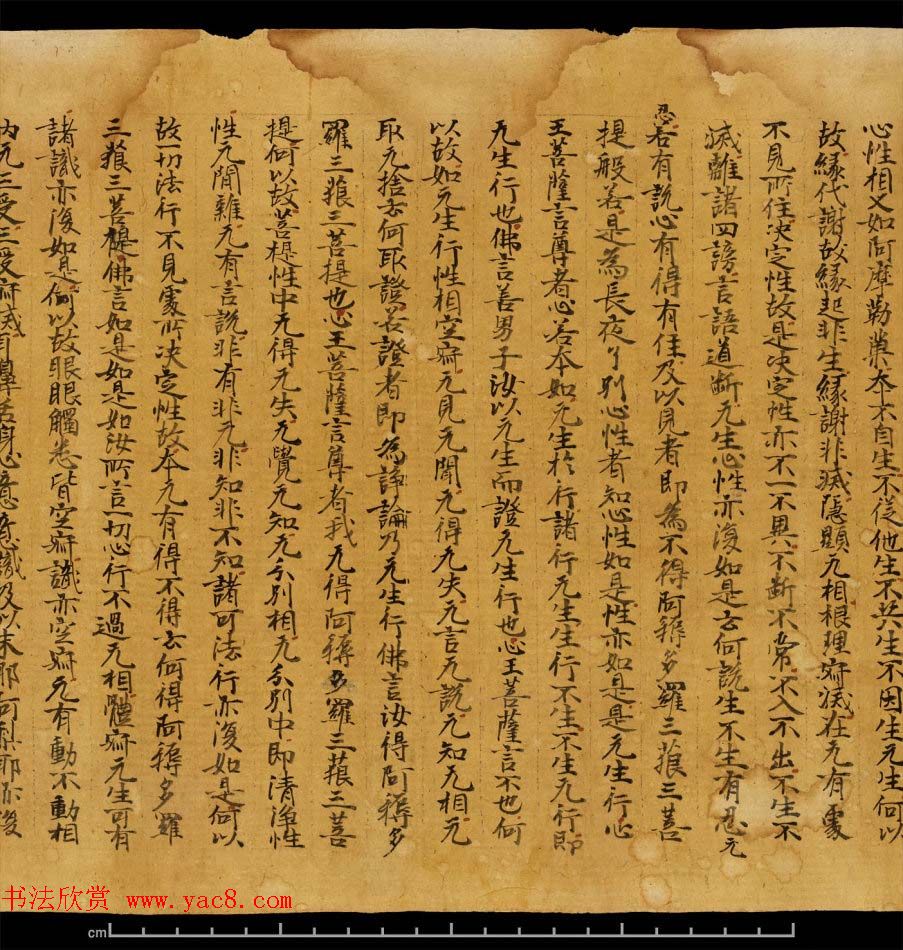 心性相又如阿摩勒菓本不自生不從他生不共生不因生无生何以
故緣代謝故緣起非生緣謝非滅隱顯无相根理寂滅在无有處
不見所住决定性故是决定性亦不一不異不斷不常不入不出不生不
滅離諸四謗言語道断无生心性亦復如是云何說生不生有忍无
忍若有說心有得有住及以見者即為不得阿耨多羅三藐三菩
提般若是為長夜了別心性者知心性如是性亦如是是无生行心
王菩薩言尊者心若本如无生於行諸行无生生行不生不生无行即
无生行也佛言善男子汝以无生而證无生行也心王菩薩言不也何
以故如无生行性相空寂无見无聞无得无失无言无說无知无相无
取无捨云何取證若證者即為諍論乃无生行佛言汝得阿耨多
羅三藐三菩提也心王菩薩言尊者我无得阿耨多羅三藐三菩
提何以故菩提性中无得无失无覺无知无分別相无分別中即清淨性
性无間雜无有言說非有非无非知非不知諸可法行亦復如是何以
故一切法行不見處所决定性故本无有得不得云何得阿耨多羅
三藐三菩提佛言如是如是如汝所言一切心行不過无相體寂无生可有
諸識亦復如是何以故眼眼觸悉皆空寂識亦空寂无有動不動相
内无三受三受寂滅耳鼻舌身心意意識及以末耶阿梨耶亦復
书法欣赏 www.yac8.com
cm